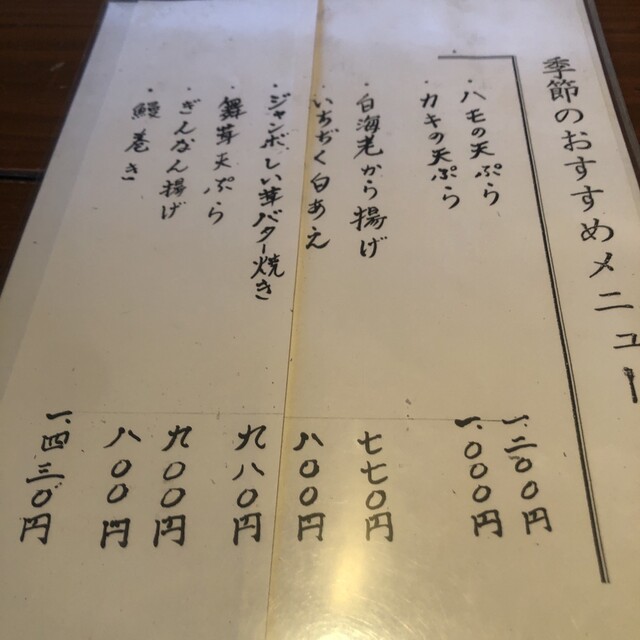 季節のおすすめメニュー
・ハモの天ぷら 一、二〇〇円
・カキの天ぷら 一、〇〇〇円
・白海老から揚げ 七七〇円
・いちぢく白あえ 八〇〇円
・ジャンボしい茸バター焼き 九八〇円
・舞茸天ぷら 九〇〇円
・ぎんなん揚げ 八〇〇円
・鰻巻き 一、四三〇円